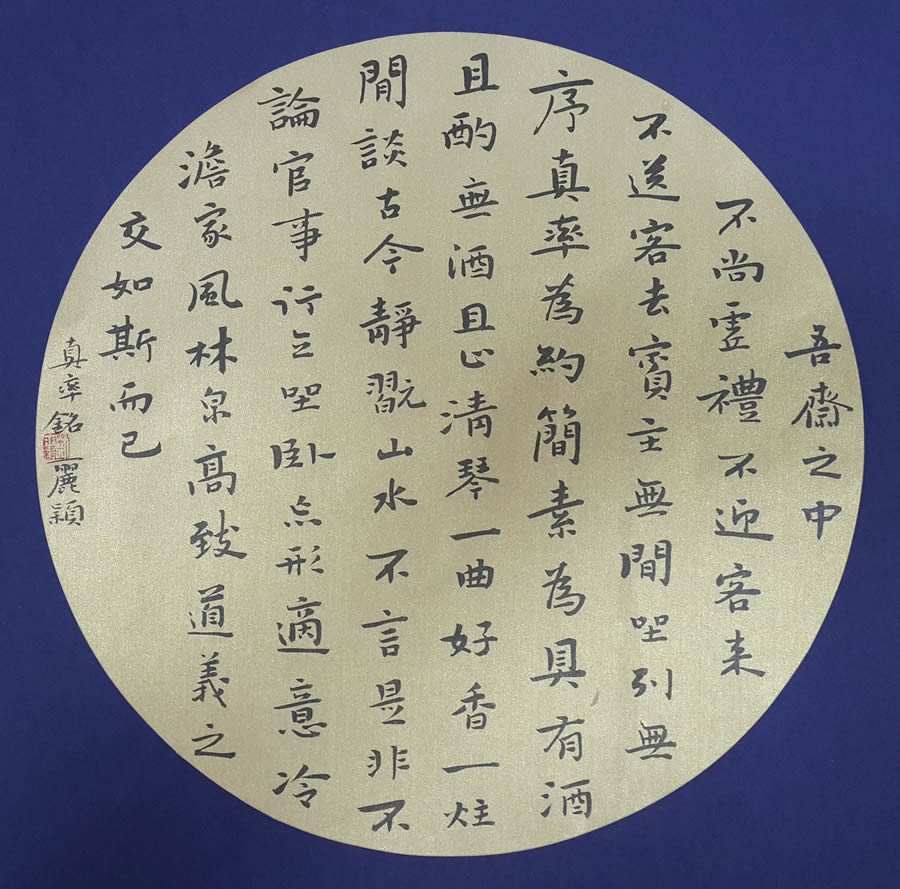 吾齋之中
不尚虛禮不迎客来
不送客去賓主無間坐列無
序真率為約簡素為具有酒
且酌無酒且止清琴一曲好香一炷
閒談古今靜翫山水不言是非不
論官事行立坐卧忘形適意冷
澹家風林泉高致道義之
交如斯而已
真率銘 麗穎